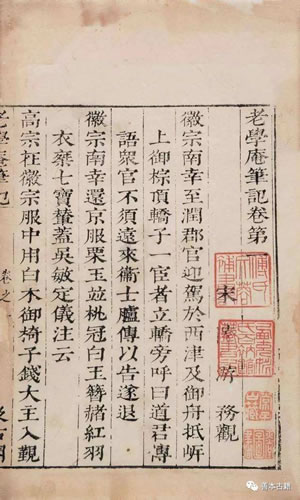 老學庵筆記卷第
宋 務觀
徽宗南幸至潤郡官迎駕於西津及御舟抵岍
上御棕頂轎子一宦者立轎旁呼曰道君傳
語衆官不須遠來衞士臚傳以告遂退
徽宗南幸還京服栗玉並桃冠白玉簪赭紅羽
衣乘七寶輦蓋吳敏定儀注云
高宗在徽宗服中用白木御椅子錢大主入覲
老學庵筆記
卷之一
汲古閣
善本古籍